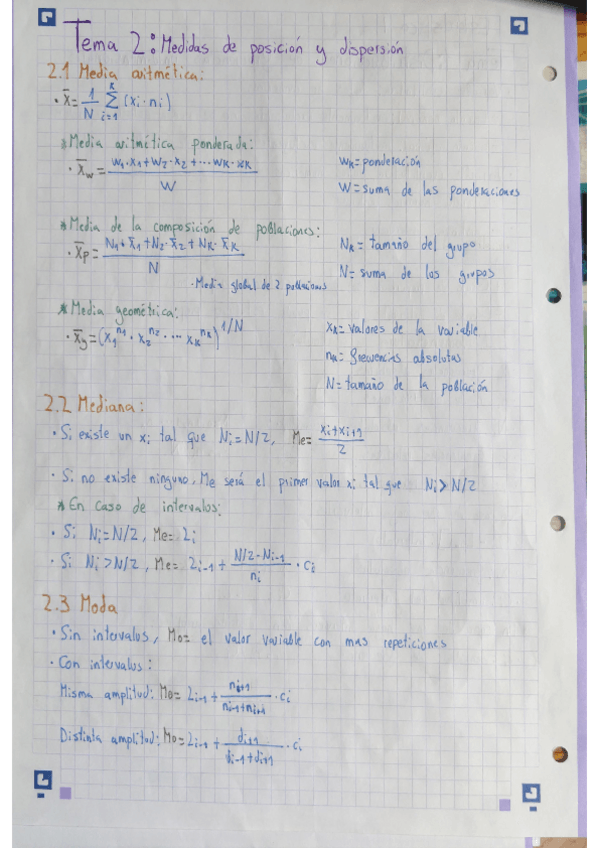 Tema 2: Medidas de posición y dispersión
2.1 Media aritmética:
· x̄ = 1/N Σ_{i=1}^{k} (xi·ni)
*Media aritmética ponderada:
· x̄w = (w1·x1+w2·x2+...wk·xk)/W
wk=ponderación
W=suma de las ponderaciones
*Media de la composición de poblaciones:
· x̄p = (N1·x̄1+N2·x̄2+Nk·x̄k)/N
Nk = tamaño del grupo
N= suma de los grupos
·Media global de 2 poblaciones
*Media geométrica:
· x̄g = (x1^n1 · x2^n2 ··· xk^nk)^1/N
xk= valores de la variable
nk= frecuencias absolutas
N=tamaño de la población
2.2 Mediana:
· Si existe un xi tal que Ni=N/2, Me= (xi+xi+1)/2
· Si no existe ninguno, Me será el primer valor xi tal que Ni>N/2
*En caso de intervalos:
· Si Ni=N/2, Me= Li
· Si Ni>N/2, Me= Li-1 + (N/2-Ni-1)/ni · ci
2.3 Moda
· Sin intervalos, Mo= el valor variable con mas repeticiones
· Con intervalos:
Misma amplitud: Mo= Li-1 + ni+1/(ni-1+ni+1) · ci
Distinta amplitud: Mo= Li-1 + di+1/(di-1+di+1) · ci